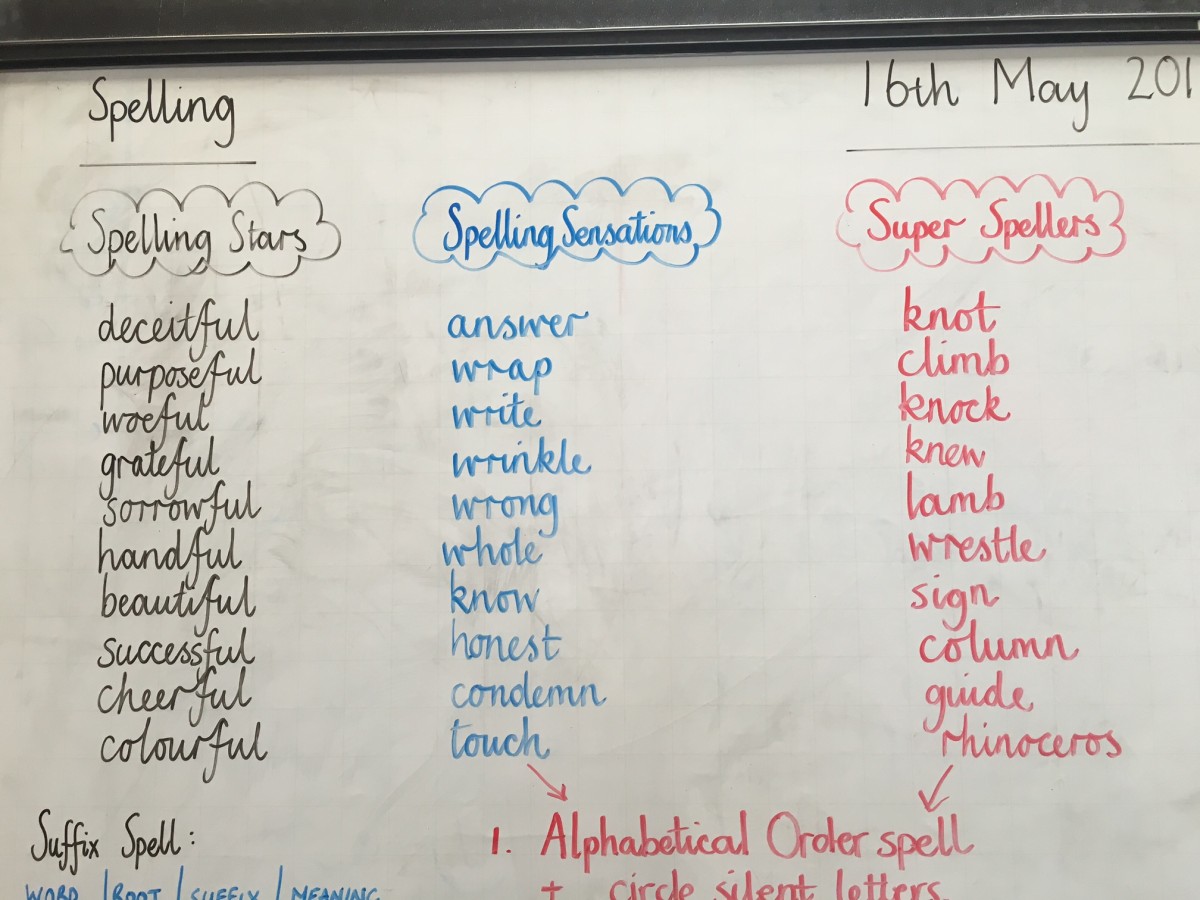 Spelling
16th May 201
Spelling Stars
deceitful
purposeful
woeful
grateful
sorrowful
handful
beautiful
successful
cheerful
colourful
Spelling Sensations
answer
wrap
write
wrinkle
wrong
whole
know
honest
condemn
touch
Super Spellers
knot
climb
knock
knew
lamb
wrestle
sign
column
guide
rhinoceros
Suffix Spell:
WORD / ROOT / SUFFIX / MEANING
1. Alphabetical Order spell
+ circle silent letters.